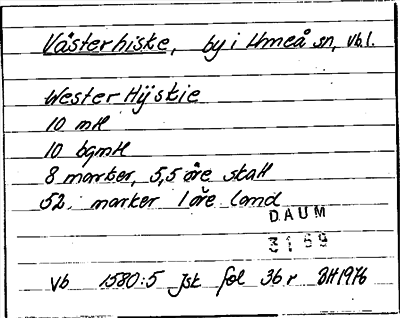 Västerhiske, by i Umeå sn, vb.l.
Wester Hÿskie
10 mtl
10 bgmtl
8 marker, 5,5 öre skatt
52. marker 1 öre land
DAUM
3169
Vb 1580:5 Jsk fol 36 r BH1976